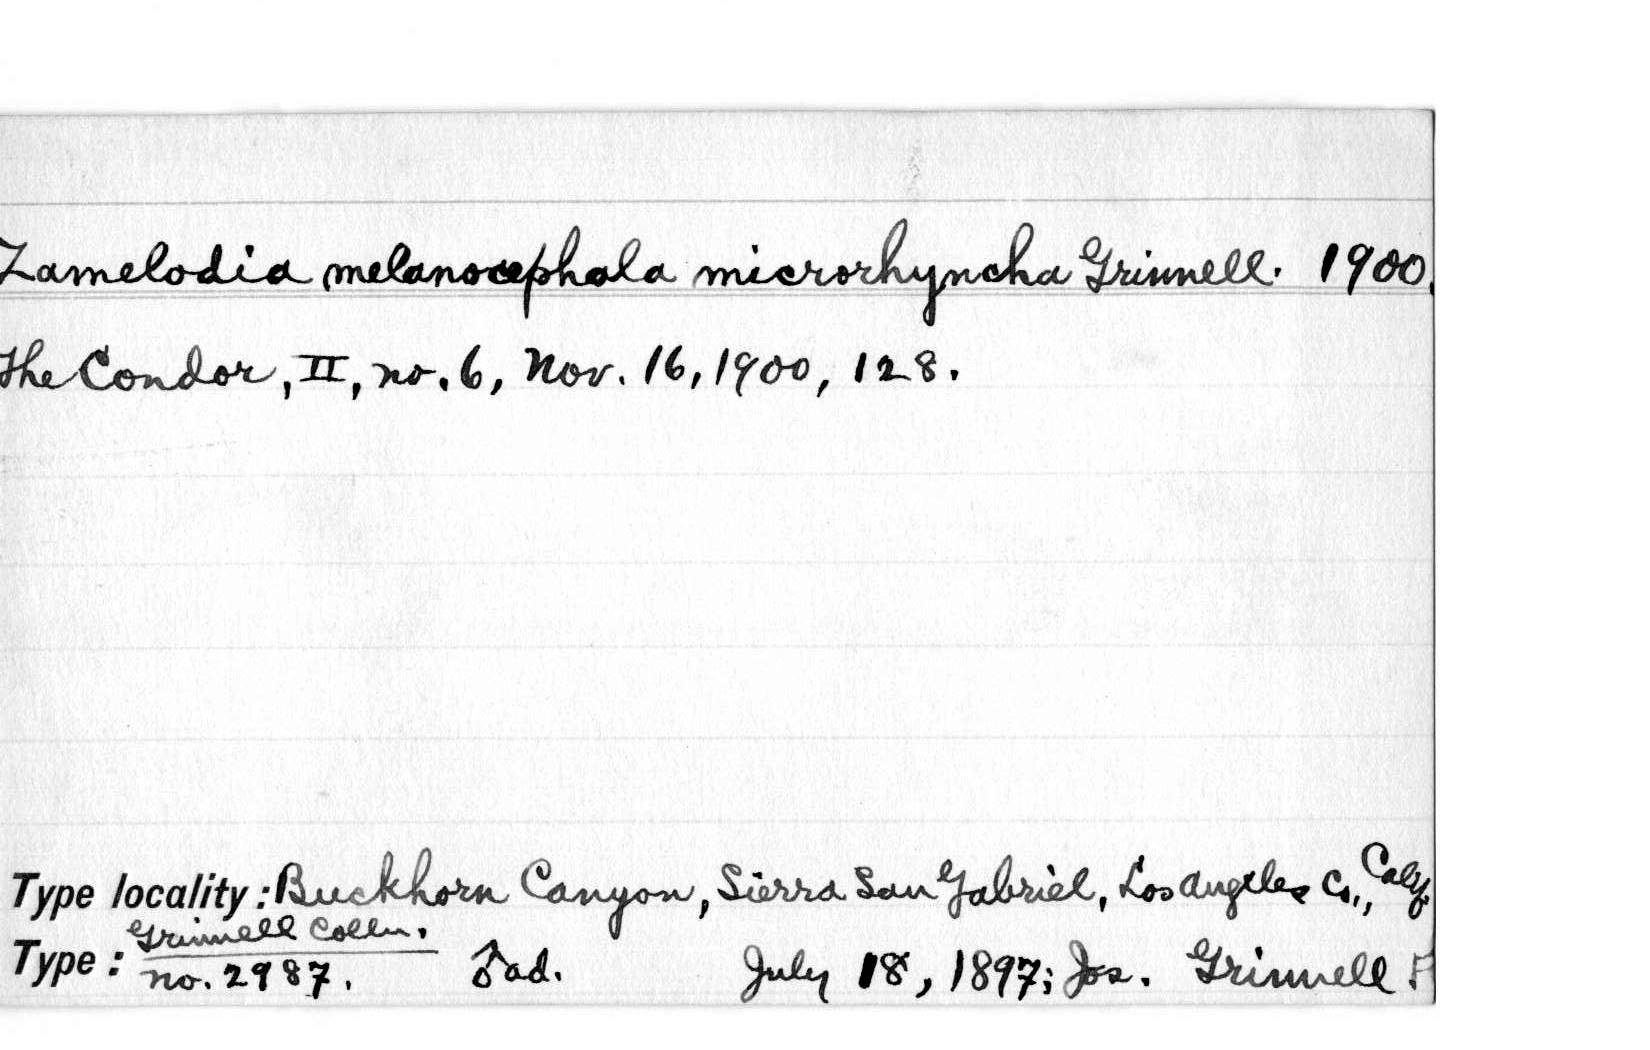 Zamelodia melanocephala microrhyncha Grinnell. 1900.
The Condor, II, no. 6, Nov. 16, 1900, 128.
Type locality: Buckhorn Canyon, Sierra San Gabriel, Los Angeles Co., Calif.
Grinnell Colln.
Type: no. 2987. ♂ ad. July 18, 1897; Jos. Grinnell